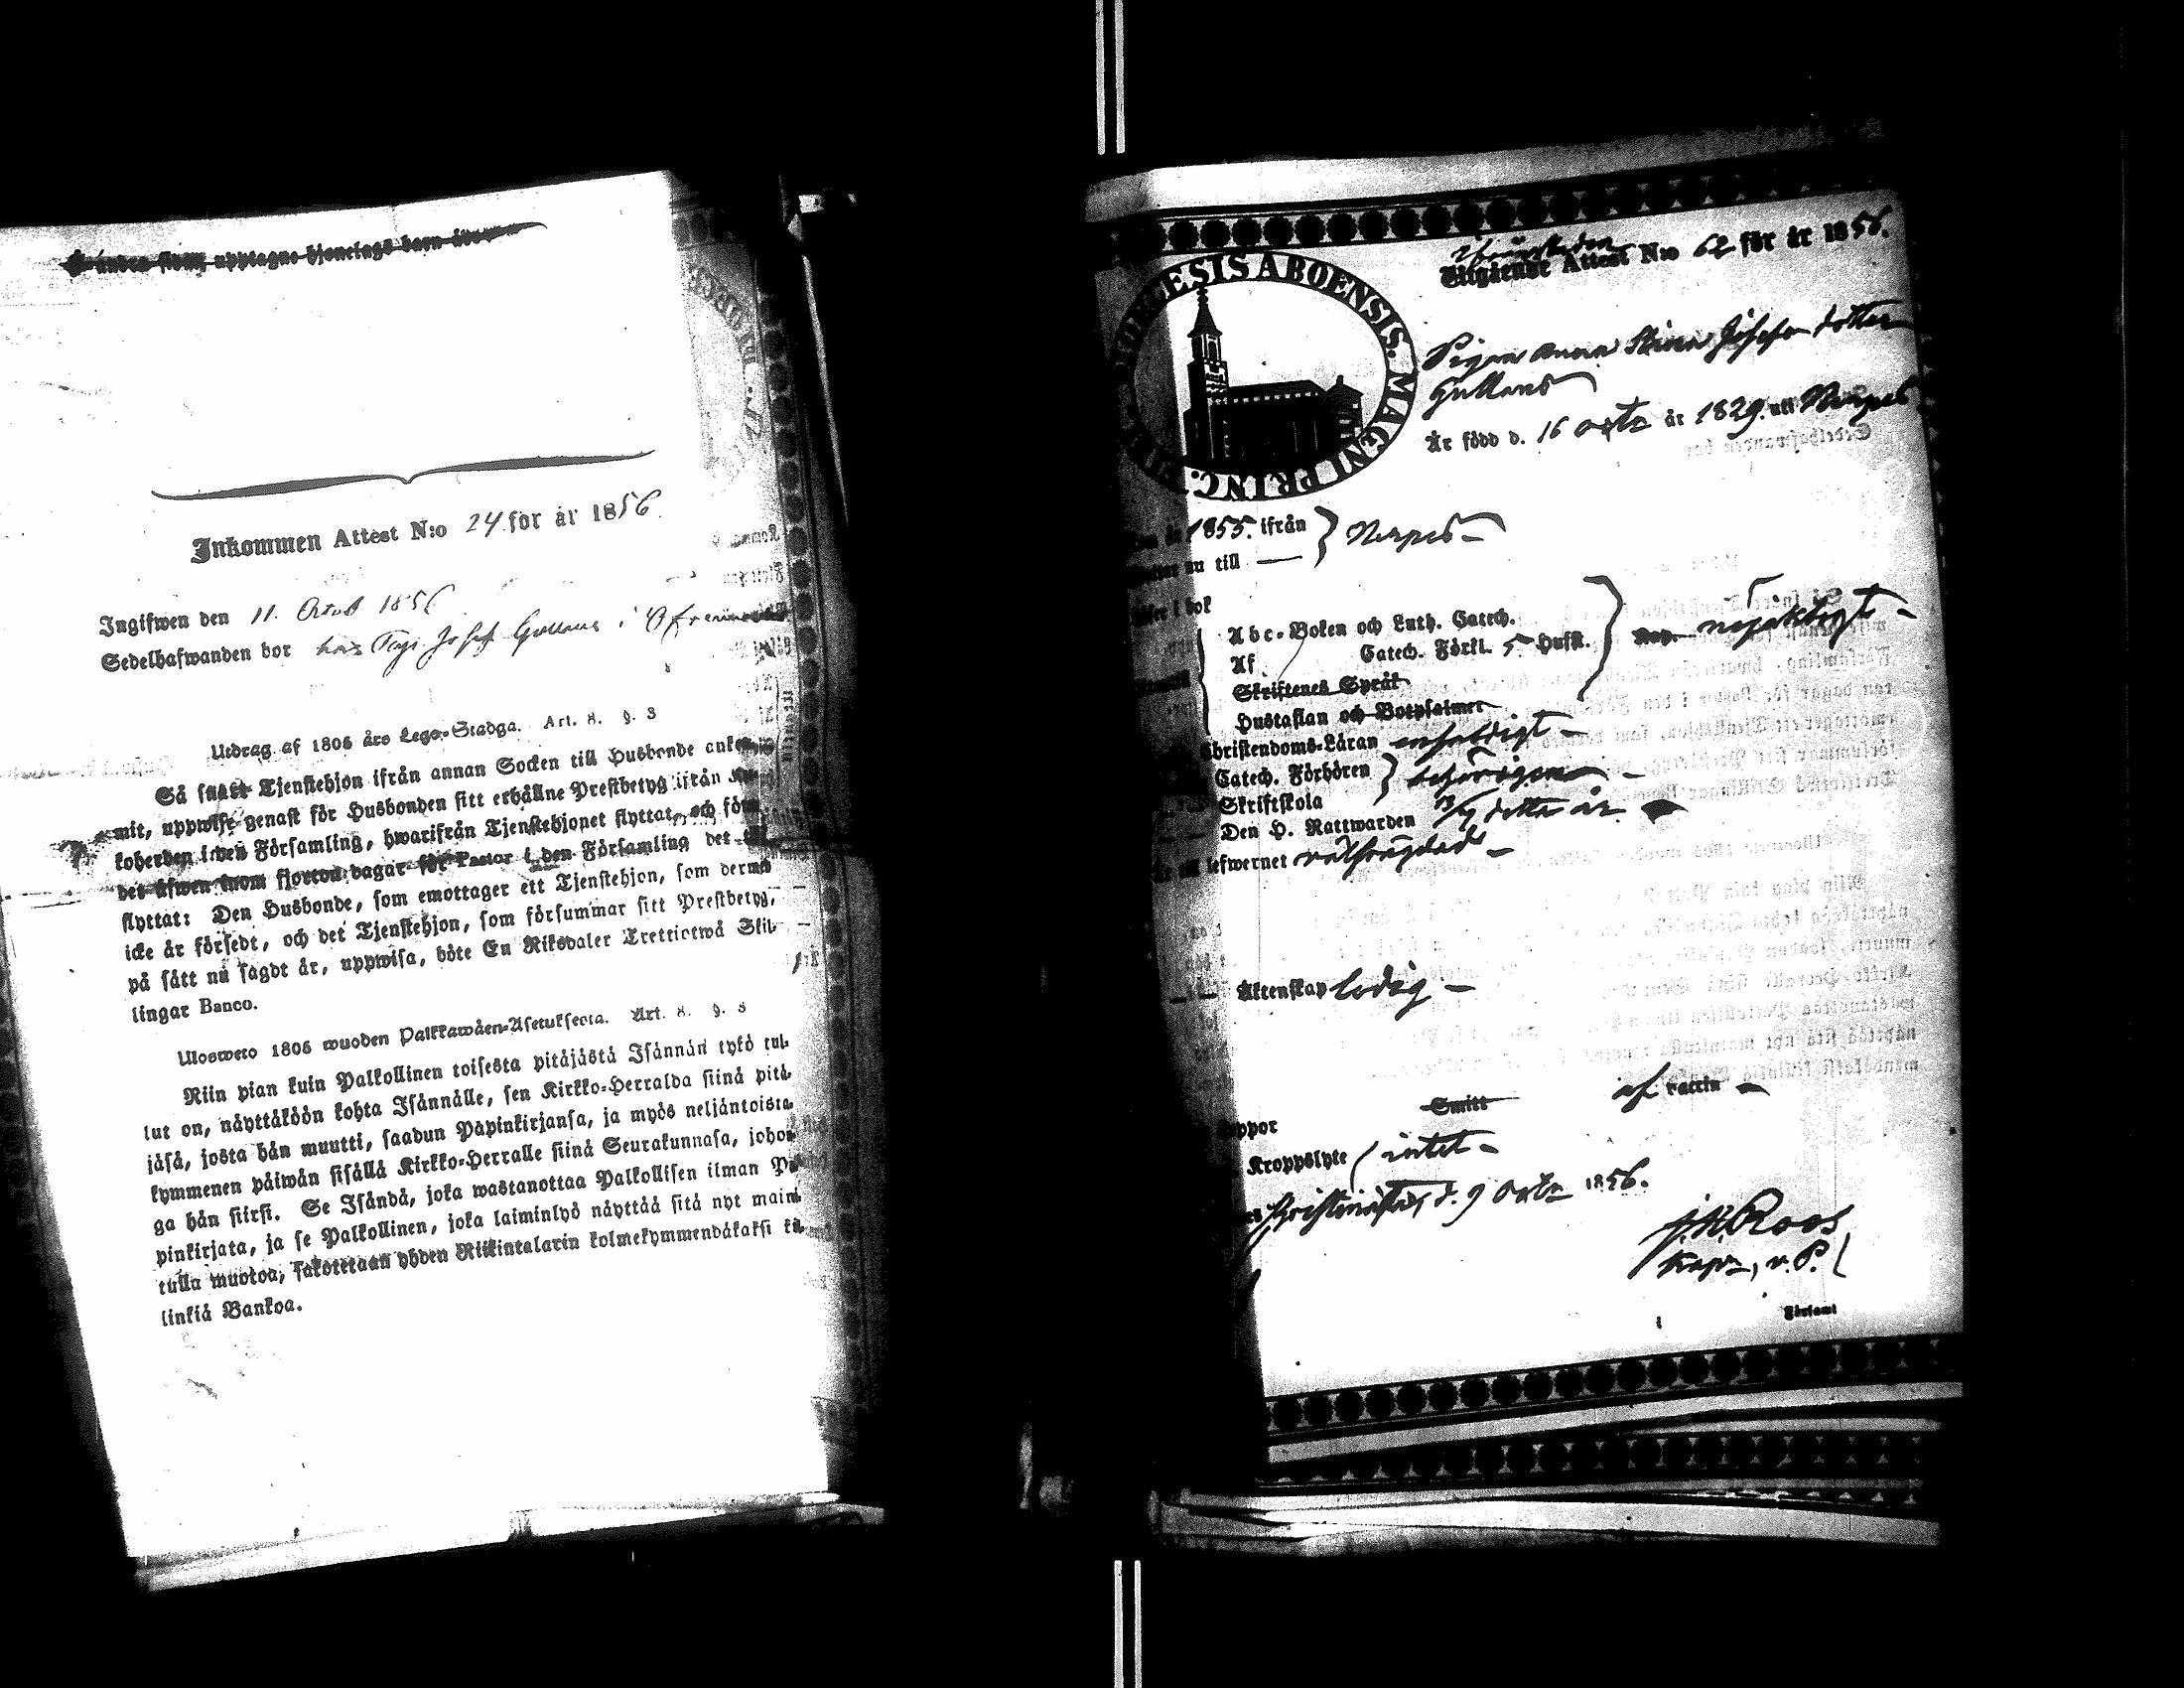 Å andra sidan upptagne hjonelags barn äro
Inkommen Attest N:o 24 för år 1856
Ingifwen den 11. Octob 1856
Sedelhafwanden bor hos Josef Gullans i
Utdrag af 1805 års Lego-Stadga. Art. 8. §. 3
Så snart Tjenstehjon ifrån annan Socken till Husbonde ankom-
mit, uppwise genast för Husbonden sitt erhållne Prestbetyg ifrån
koherden i den Församling, hwarifrån Tjenstehjonet flyttat, och före
det äfwen inom fjorton dagar för Pastor i den Församling det
flyttat: Den Husbonde, som emottager ett Tjenstehjon, som dermed
icke är försedt, och det Tjenstehjon, som försummar sitt Prestbetyg,
på sätt nu sagdt är, uppwisa, böte En Riksdaler Trettiotwå Skil-
lingar Banco.
Ulosweto 1805 wuoden Palkkawäen-Asetuksesta. Art. 8. §. 3
Niin pian kuin Palkollinen toisesta pitäjästä Isännän tykö tul-
lut on, näyttäköön kohta Isännälle, sen Kirkko-Herralda siinä pitä-
jäsä, josta hän muutti, saadun Papinkirjansa, ja myös neljäntoista-
kymmenen päiwän sisällä Kirkko-Herralle siinä Seurakunnasa, johon-
ga hän siirsi. Se Isändä, joka wastanottaa Palkollisen ilman Pa-
pinkirjata, ja se Palkollinen, joka laiminlyö näyttää sitä nyt maini-
tulla muotoa, sakotetaan yhden Riikintalarin kolmekymmendäkaksi kil-
linkiä Bankoa.
DIOECESIS ABOENSIS. MAGNI PRINC.
Utgående Attest N:o 62 för år 1856.
Pigan Anna Stina Josefs dotter
Gullans
Är född d. 16 octb år 1829. uti Nerpes
år 1855. ifrån } Nerpes –
nu till —
i bok
Abc-Boken och Luth. Catech.
Af Catech. Förkl. 5 Hufst.
Skriftenes Språk
Hustaflan och Botpsalmer
Christendoms-Läran enfaldigt –
Catech. Förhören } behörigen –
Skriftskola
Den H. Nattwarden 13/7 detta år
lefwernet välfrägdad –
Äktenskap ledig –
Smitt af vaccin –
koppor
Kroppslyte intet –
Christinestad, d. 9 Octb 1856.
J. H. Roos
Kapn, v. P.
Församl